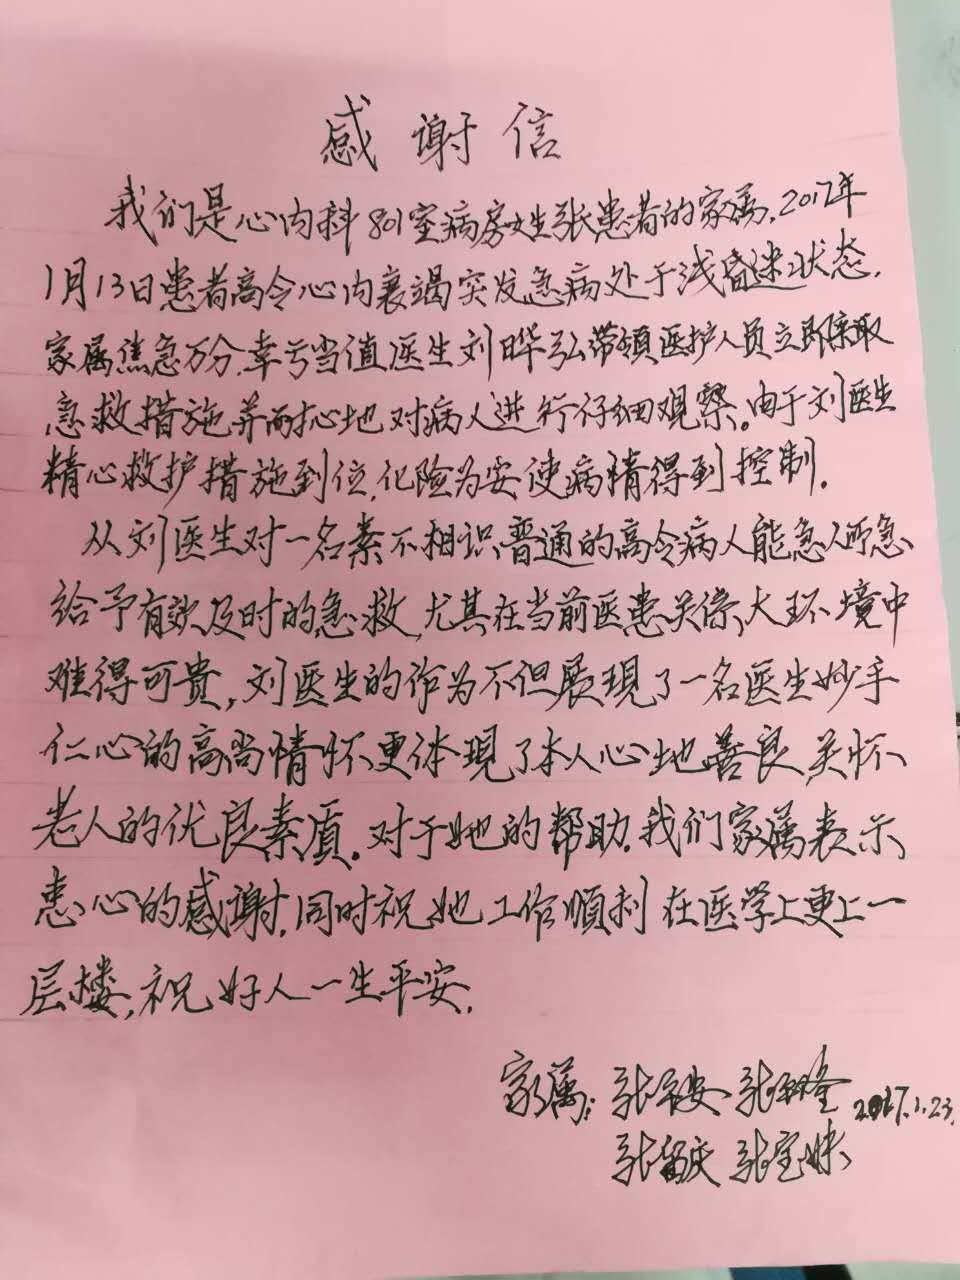 感谢信
我们是心内科801室病房女生张患者的家属,2017年
1月13日患者高令心内衰竭突发急病处于浅昏迷状态,
家属焦急万分,幸亏当值医生刘晔弘带领医护人员立即采取
急救措施并耐心地对病人进行仔细观察。由于刘医生
精心救护措施到位,化险为安使病情得到控制.
从刘医生对一名素不相识普通的高令病人能急人所急
给予有效及时的急救,尤其在当前医患关系大环境中
难得可贵,刘医生的作为不但展現了一名医生妙手
仁心的高尚情怀更体現了本人心地善良,关怀
老人的优良素质。对于她的帮助.我们家属表示
衷心的感谢.同时祝她工作順利在医学上更上一
层楼,祝好人一生平安.
家属:张 张 2017.1.23.
张留庆 张宝妹